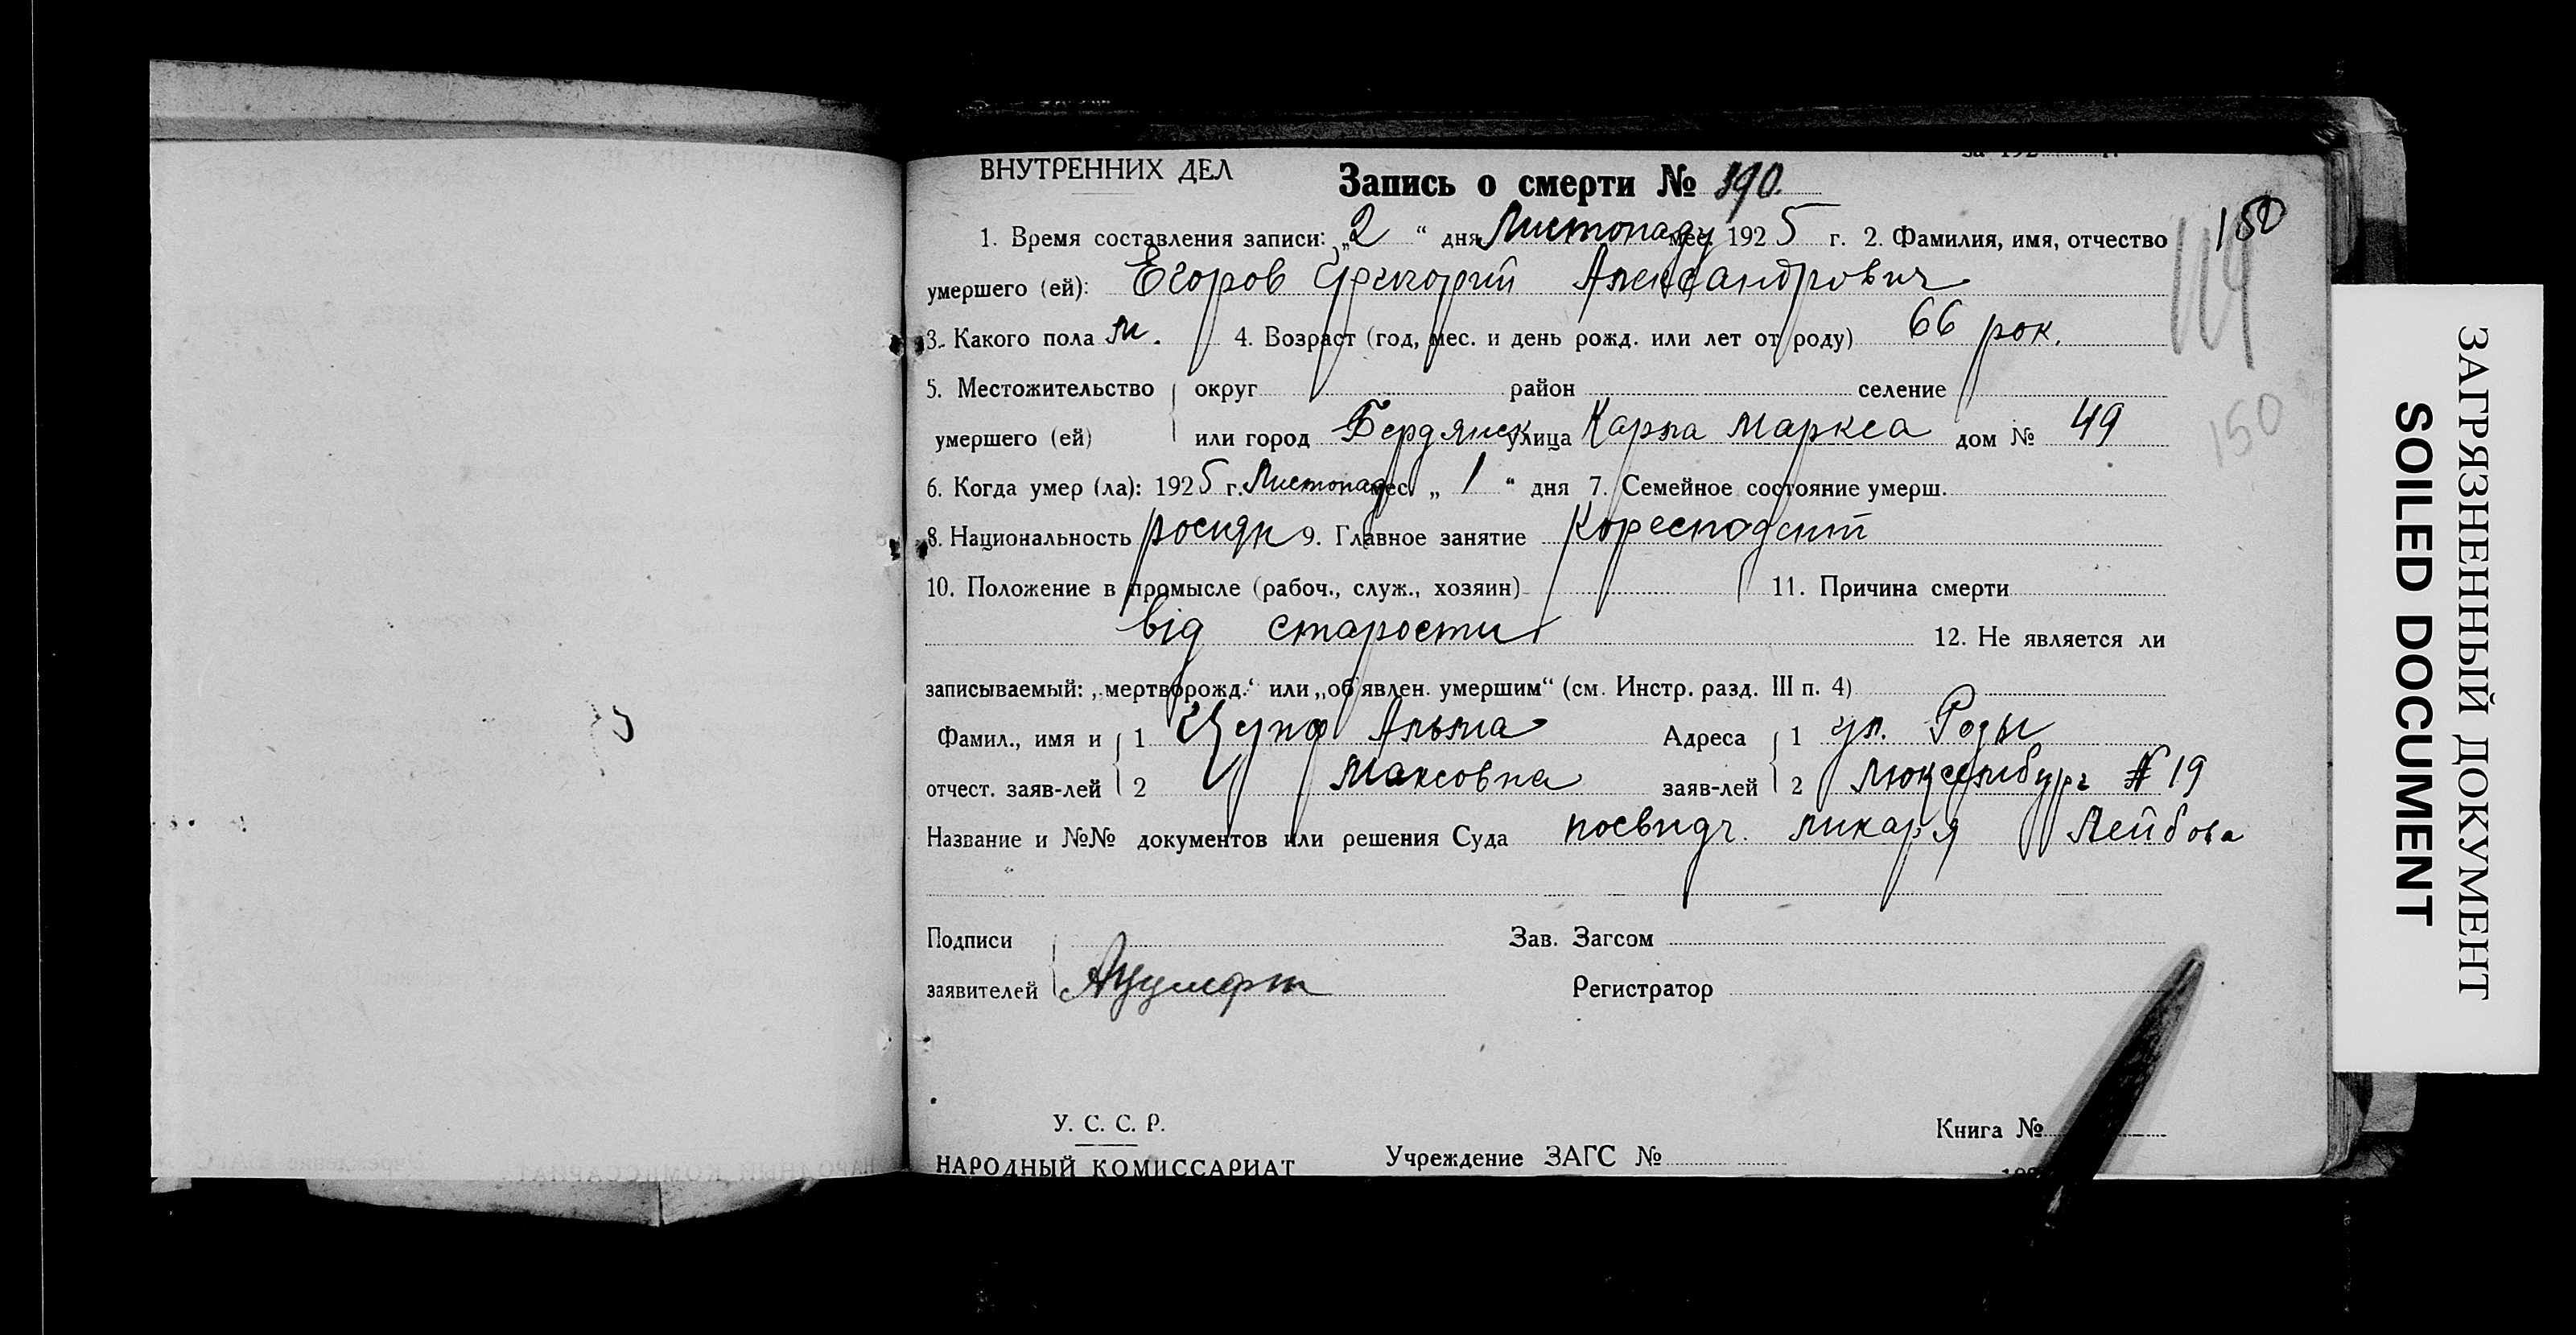 ВНУТРЕННИХ ДЕЛ
Запись о смерти № 390.
1. Время составления записи: „2“ дня Листопаду мес. 1925 г. 2. Фамилия, имя, отчество
умершего (ей): Егоров Григорий Александрович
3. Какого пола м. 4. Возраст (год, мес. и день рожд. или лет от роду) 66 рок.
5. Местожительство округ район селение
умершего (ей) или город Бердянск улица Карла Маркса дом № 49
6. Когда умер (ла): 1925 г. Листопад мес. „1“ дня 7. Семейное состояние умерш.
8. Национальность росиян 9. Главное занятие Коресподент
10. Положение в промысле (рабоч., служ., хозяин) 11. Причина смерти
від старости 12. Не является ли
записываемый: „мертворожд.“ или „об'явлен. умершим“ (см. Инстр. разд. III п. 4)
Фамил., имя и 1 Альма Адреса 1 ул. Розы
отчест. заяв-лей 2 Максовна заяв-лей 2 Люксембург № 19
Название и №№ документов или решения Суда посвидч. ликаря Лейбова
Подписи Зав. Загсом
заявителей Регистратор
У. С. С. Р.
Книга №
НАРОДНЫЙ КОМИССАРИАТ Учреждение ЗАГС №
150
119
150
ЗАГРЯЗНЕННЫЙ ДОКУМЕНТ
SOILED DOCUMENT